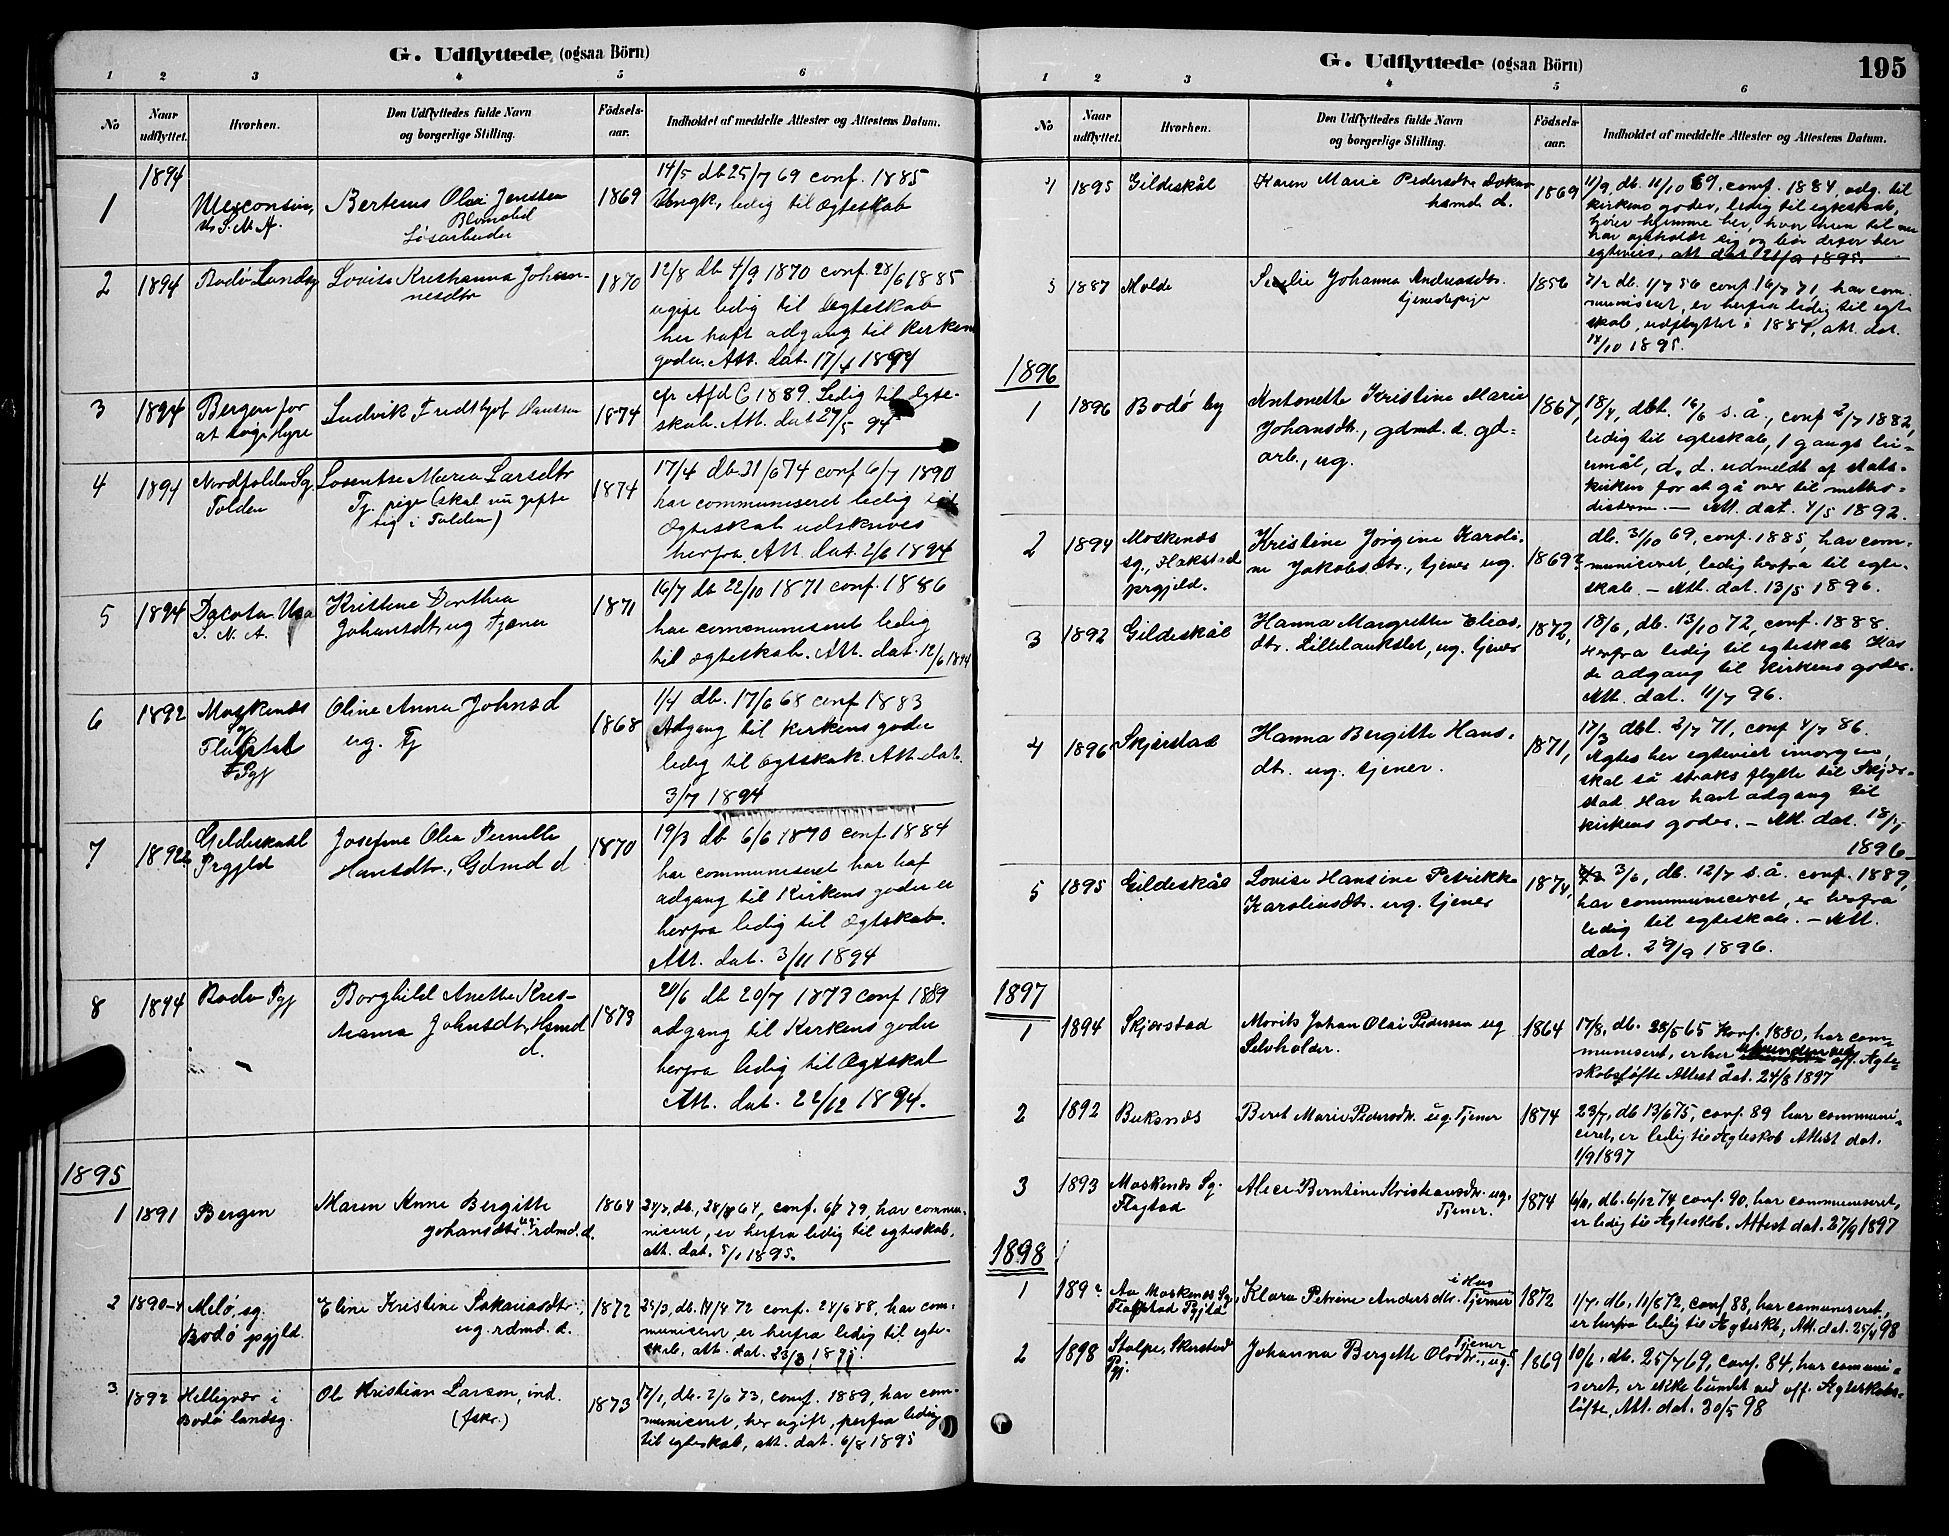 G. Udflyttede (ogsaa Börn)
1 2 3 4 5 6
No
Naar udflyttet.
Hvorhen.
Den Udflyttedes fulde Navn
og borgerlige Stilling.
Födsels-
aar.
Indholdet af meddelte Attester og Attestens Datum.
1
1894
U. S. N. A.
Bertenus Olai Jenssen
Løsarbeider
1869
14/5 db 25/7 69 conf. 1885
Ungk, ledig til Ægteskab
2
1894
Bodø Landsg
Lovise Kristianna Johan-
nesdtr
1870
12/8 db 4/9 1870 conf. 28/6 1885
ugift ledig til Ægteskab
har haft adgang til Kirkens
goder. Att. dat. 17/4 1894
3
1894
Bergen for
at tage Hyre
Ludvik Fridthjof Danssen
1874
cfr Afd C 1889. Ledig til Ægte-
skab. Att. dat 27/5 94
4
1894
Nordfolden Sg.
Folden
Losentse Maria Larsdtr
Tj. pige (skal nu gifte
sig i Folden)
1874
17/4 db 21/6 74 conf 6/7 1890
har communiseret ledig til
Ægteskab udskrives
herfra. Att. dat. 2/6 1894
5
1894
Dacota Usa
S. N. A.
Kristine Dorthea
Johansdtr, ug Tjener
1871
16/7 db 22/10 1871 conf. 1886
har communiseret ledig
til ægteskab. Att. dat. 12/6 1894
6
1892
Moskenæs
Sg
Pgj
Oline Anna Johnsd
ug. Tj
1868
1/4 db. 17/6 68 conf 1883
Adgang til kirkens goder
ledig til Ægtskab. Att. dat.
3/7 1894
7
1892
Gildeskaal
Prgjld
Josefine Olea Pernille
Hansdtr., Gdmd d
1870
19/3 db 6/6 1870 conf 1884
har communiseret har haf
adgang til Kirkens goder er
herfra ledig til Ægtskab.
Att. dat. 3/11 1894
8
1894
Bodø Pgj
Borghild Anette Kris-
tianna Johnsdtr, Hsmd
d.
1873
20/6 db 20/7 1873 conf 1889
adgang til Kirkens goder
herfra ledig til Ægtskab
Att. dat. 22/12 1894.
1895
1
1891
Bergen
Maren Anne Bergitte
Johansdtr. ug. rdmd. d.
1864
24/7, db. 28/8 64, conf. 6/7 79, har commu-
niceret, er herfra ledig til egteskab,
att. dat. 5/1 1895.
2
1890-4
Melø, sg.
Bodø pgjld.
Eline Kristine Sakariasdtr.,
ug. rdmd. d.
1872
db. 14/4 72 conf. 24/6 88, har com-
municeret er herfra ledig til egte-
skab, att. dat. 23/3 1895.
3
1892
Helligvær i
Bodø landsg.
Ole Kristian Larsen, ind.
(fskr.)
1873
17/1, db. 2/6 73, conf. 1889, har com-
municeret, her ugift, herfra ledig
til egteskab, att. dat. 6/8 1895
G. Udflyttede (ogsaa Börn)
195
1 2 3 4 5 6
No
Naar
udflyttet.
Hvorhen.
Den Udflyttedes fulde Navn
og borgerlige Stilling.
Födsels-
aar.
Indholdet af meddelte Attester og Attestens Datum.
4
1895
Gildeskål
Karen Marie Pedersdtr
hsmd. d.
1869
11/9, db. 11/10 69, conf. 1884, adg. til
kirkens goder, ledig til egteskab,
hører hjemme her, hvor hun til nu
har opholdt sig og bør derfor her
egtevies, att. dat. 21/9 1895.
5
1887
Molde
Johanna Andreasdtr.
tjenestepige
1856
db. 1/7 56 conf. 16/7 71, har com-
municeret, er herfra ledig til egte
skab, udflyttet i 1887, att. dat.
14/10 1895.
1896
1
1896
Bodø by
Antonette Kristine Marie
Johansdtr., gdmd. d. gd=
arb., ug.
1867,
18/4, dbt. 16/6 s. å., conf 2/7 1882,
ledig til egteskab, 1 gangs lri-
umål, d. d. udmeldt af stats-
kirken for at gå over til metho-
disterne. — Att. dat. 4/5 1892.
2
1894
Moskenæs
sg., Flakstad
prgjeld.
Kristine Jørgine Karoli-
ne Jakobsdtr., tjener ug.
1869?
db. 31/10 69, conf. 1885, har com-
municeret, ledig herfra til egte-
skab. — Att. dat. 13/5 1896.
3
1892
Gildeskål
Hanna Margrethe Elias-
dtr. ug. tjener
1872,
18/6, db. 13/10 72, conf. 1888.
Herfra ledig til egteskab Hav-
de adgang til kirkens goder.
Att. dat. 11/7 96.
4
1896
Skjerstad
Hanna Bergitte Hans-
dtr. ug. tjener.
1871,
17/3 dbt. 2/7 71, conf 4/7 86.
Agtes her egteviet imorgen,
skal så straks flytte til Skjer-
stad. Har havt adgang til
kirkens goder. — Att. dat. 18/7
1896 —
5
1895
Gildeskål
Lovise Hansine Petrikke
Karolinsdtr. ug. tjener
1874,
3/6, db. 12/7 s. å. conf. 1889,
har communiceret, er herfra
ledig til egteskab. — Att.
dat. 29/9 1896.
1897
1
1894
Skjerstad
Morits Johan Olai Pedersen ug
Selvholder.
1864
17/8, db. 28/5 65 Konf. 1880, har com-
muniseret, er her ubunden ved off. Ægte-
skabsløfte Attest dat. 24/8 1897
2
1892
Buksnæs
Beret Marie Pedersdtr. ug. Tjener
1874
23/7, db 13/6 75, conf. 89 har communi-
ciret, er ledig til Ægteskab Attest dat.
1/9 1897
3
1893
Moskenæs Sg.
Flagstad
Alece Berntine Kristiansdtr. ug.
Tjener.
1874
6/11, db. 6/12 74 conf. 90, har communiseret,
er ledig til Ægteskab, Attest dat. 27/9 1897
1898
1
Aa Moskenæs Sg.,
Flagstad Pgjld
Klara Petrine Andersdtr. i Hus
Tjener
1872
1/7, db. 11/8 72, conf 88, har comuniseret,
er herfra ledig til Ægteskb, Att. dat. 25/4 98
2
1898
Stolpe, Skerstad
Pgj.
Johanna Bergette Olsdtr., Tjener
ug.
1869
10/6, db. 25/7 69, conf. 84, har comuni-
seret, er ikke bundet ved off. Ægteskabs-
løfte, Att. dat. 30/5 98